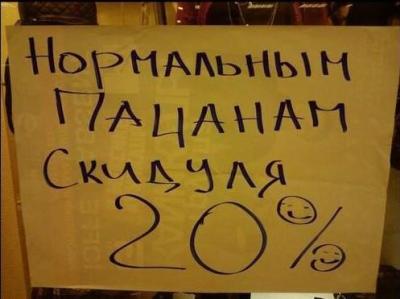 Нормальным
пацанам
Скидуля
20%